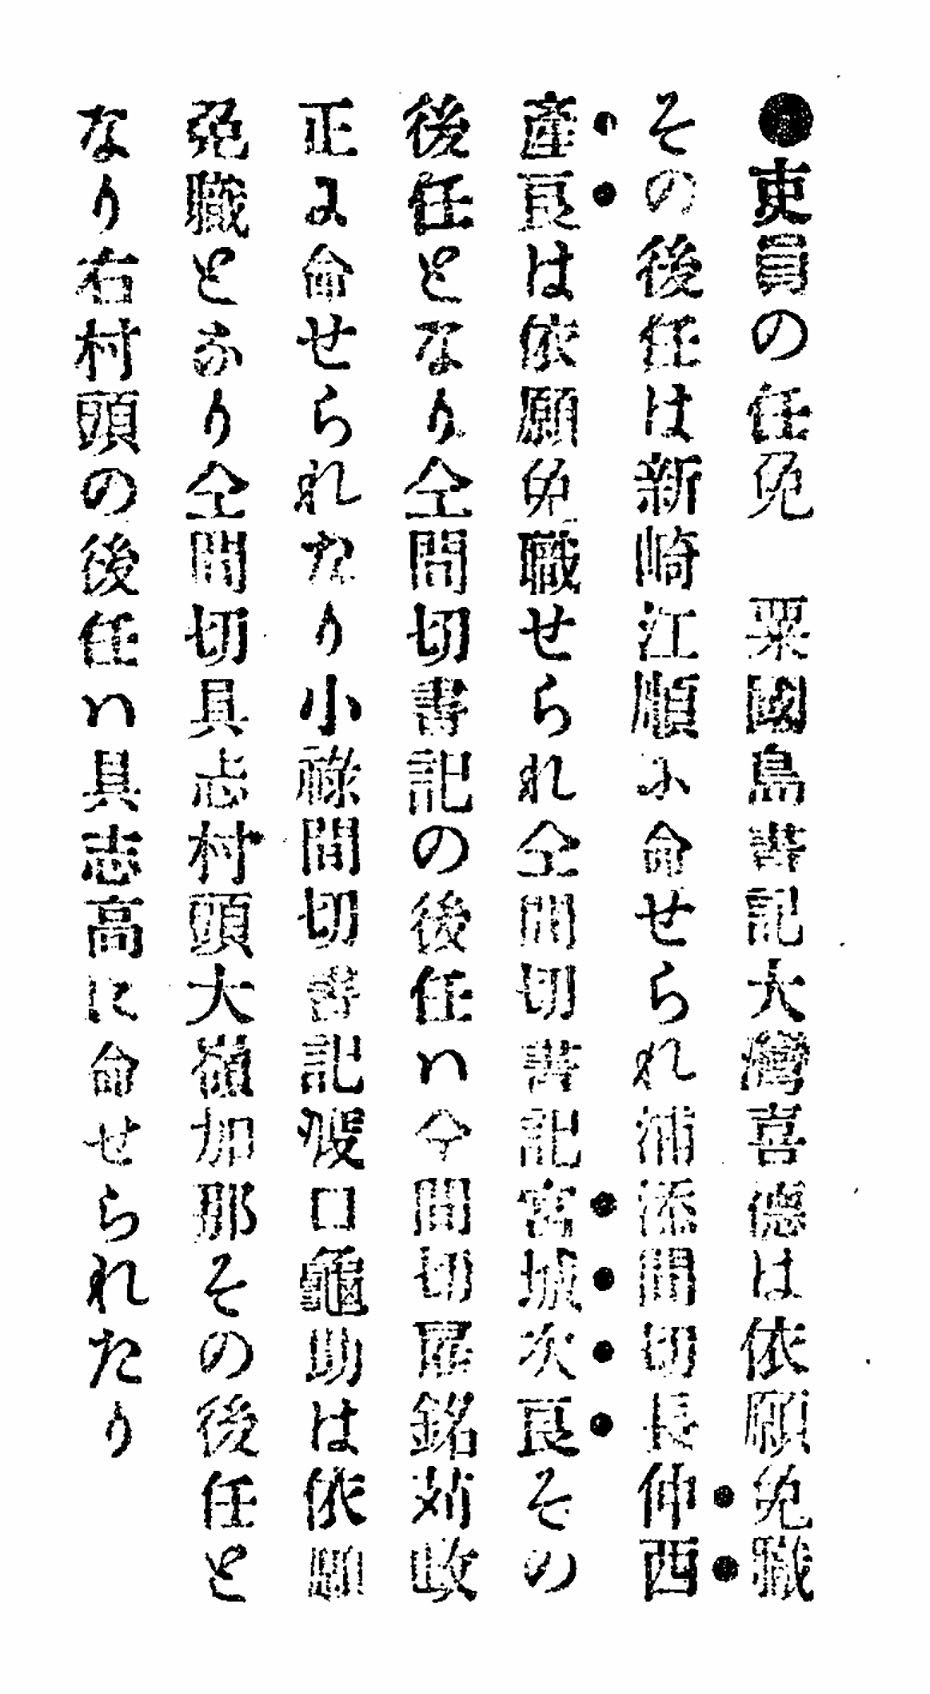 ●吏員の任免　粟國島書記大灣喜德は依願免職
その後任は新崎江順に命せられ浦添間切長仲西
產良は依願免職せられ仝間切書記宮城次良その
後任となり仝間切書記の後任ハ今間切屋銘苅收
正に命せられたり小祿間切書記 口龜助は依願
免職となり仝間切具志村頭大嶺加那その後任と
なり右村頭の後任ハ具志高に命せられたり